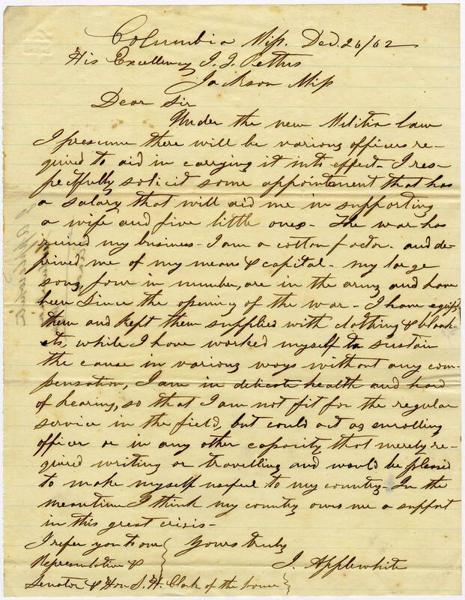 Columbia Mip. Decd. 26/62
His Excellency J. J. Pettus
Jackson Mip
Dear Sir
Under the new Militia law
I presume there will be various offices re-
quired to aid in carrying it into effect- I res-
pectfully solicit some appointment that has
a salary that will aid me in supporting
a wife and five little ones- The war has
ruined my business- I am a cotton factor. and de-
prived me of my means & capital- my large
sons, four in number, are in the army and have
been since the opening of the war- I have equipt
them and kept them supplied with clothing & blank-
ets, while I have worked myself to sustain
the cause in various ways without any com-
pensation, I am in delicate health and hard
of hearing, so that I am not fit for the regular
service in the field, but could act as enrolling
officer or in any other capacity that merely re-
quired writing or travelling and would be pleased
to make myself useful to my country- In the
meantime I think my country owes me a support
in this great crisis-
I refer you to our
Yours truly
Representative &
J. Applewhite
Senator & Hon J. H. Clark of the house